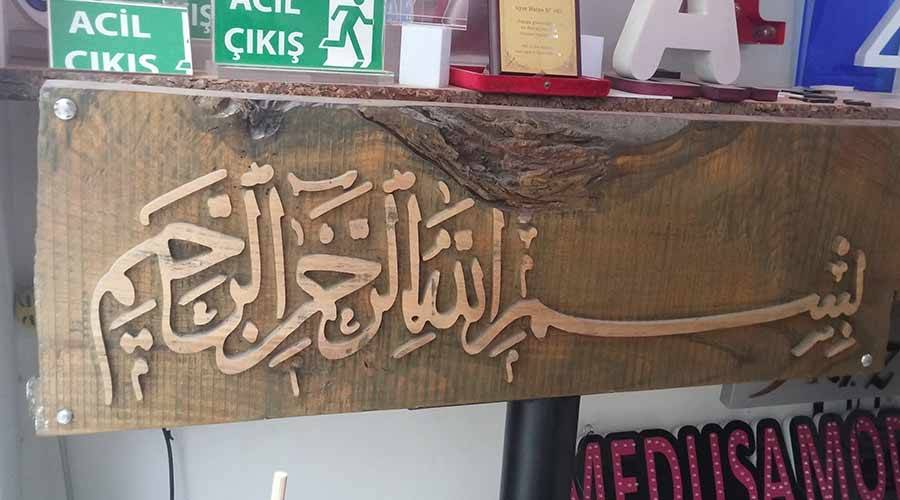 ACİL
ÇIKIŞ
ACİL
ÇIKIŞ
A
بِسْمِ اللّٰهِ الرَّحْمٰنِ الرَّحِيمِ
MEDUSAMOD